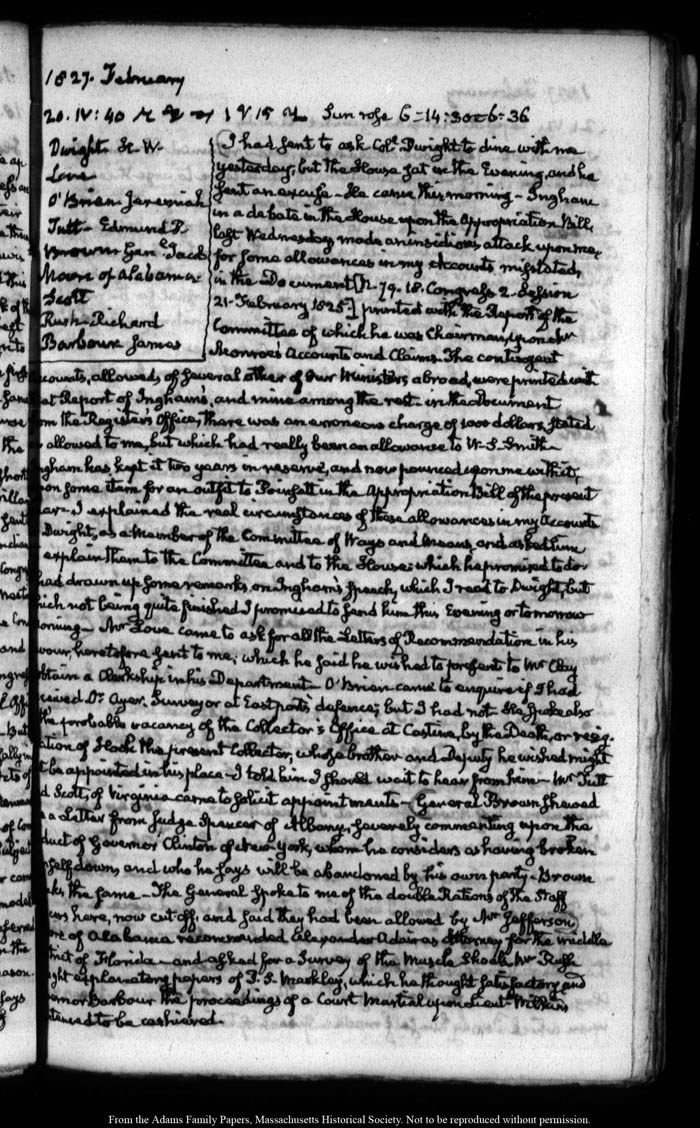 1827. February
20. IV: 40 1 V 15 Sun rose 6-14: 3 6-36
Dwight H. W.
Love
O'Brien Jeremiah
Tutt- Edmund P.
Brown Genl. Jacob
Moore of Alabama
Scott
Rush- Richard
Barbour James
I had sent to ask Coll. Dwight to dine with me
yesterday; but the House sat in the Evening, and he
sent an excuse- He came this morning- Ingham
in a debate in the House upon the Appropriation Bill,
last Wednesday made an insidious attack upon me,
for some allowances in my Accounts misstated,
in the Document [N. 79. 18. Congress 2. Session
21- February 1825.] printed with the Report of the
Committee of which he was Chairman, upon Mr
Monroe's Accounts and Claims. The contingent
counts, allowed, of several other of our Ministers abroad, were printed with
at Report of Ingham's, and mine among the rest- in the Document
om the Register's Office, there was an erroneous charge of 1000 dollars, stated
allowed to me, but which had really been an allowance to W. S. Smith-
gham has kept it two years in reserve, and now pounced upon me with it,
on some item for an outfit to Poinsett in the Appropriation Bill of the present
ear- I explained the real circumstances of these allowances in my Accounts
Dwight, as a Member of the Committee of Ways and Means, and asked him
explain them to the Committee and to the House; which he promised to do-
had drawn up some remarks, on Ingham's Speech, which I read to Dwight, but
hich not being quite finished I promised to send him this Evening or tomorrow
orning- Mr Love came to ask for all the Letters of Recommendation in his
vour, heretofore sent to me, which he said he wished to present to Mr Clay
btain a Clerkship in his Department- O'Brien came to enquire if I had
ceived Dr Ayer. Surveyor at Eastport's defence; but I had not- He spoke also
the probable vacancy of the Collector's Office at Castine, by the Death, or resig-
ation of Hook the present Collector, whose brother and Deputy he wished might
t be appointed in his place- I told him I should wait to hear from him- Mr Tutt
d Scott, of Virginia came to solicit appointments- General Brown shewed
a Letter from Judge Spencer of Albany, severely commenting upon the
duct of Governor Clinton of New-York, whom he considers as having broken
self down, and who he says will be abandoned by his own party- Brown
ks the same- The General spoke to me of the double Rations of the Staff
cers here, now cut off; and said they had been allowed by Mr Jefferson,
re of Alabama recommended Alexander Adair as Attorney for the middle
trict of Florida- and asked for a Survey of the Muscle Shoals. Mr Rush
ght explanatory papers of T. S. Macklay, which he thought satisfactory and
ernor Barbour the proceedings of a Court Martial upon Lieut- Wilkins
tenced to be cashiered-
From the Adams Family Papers, Massachusetts Historical Society. Not to be reproduced without permission.